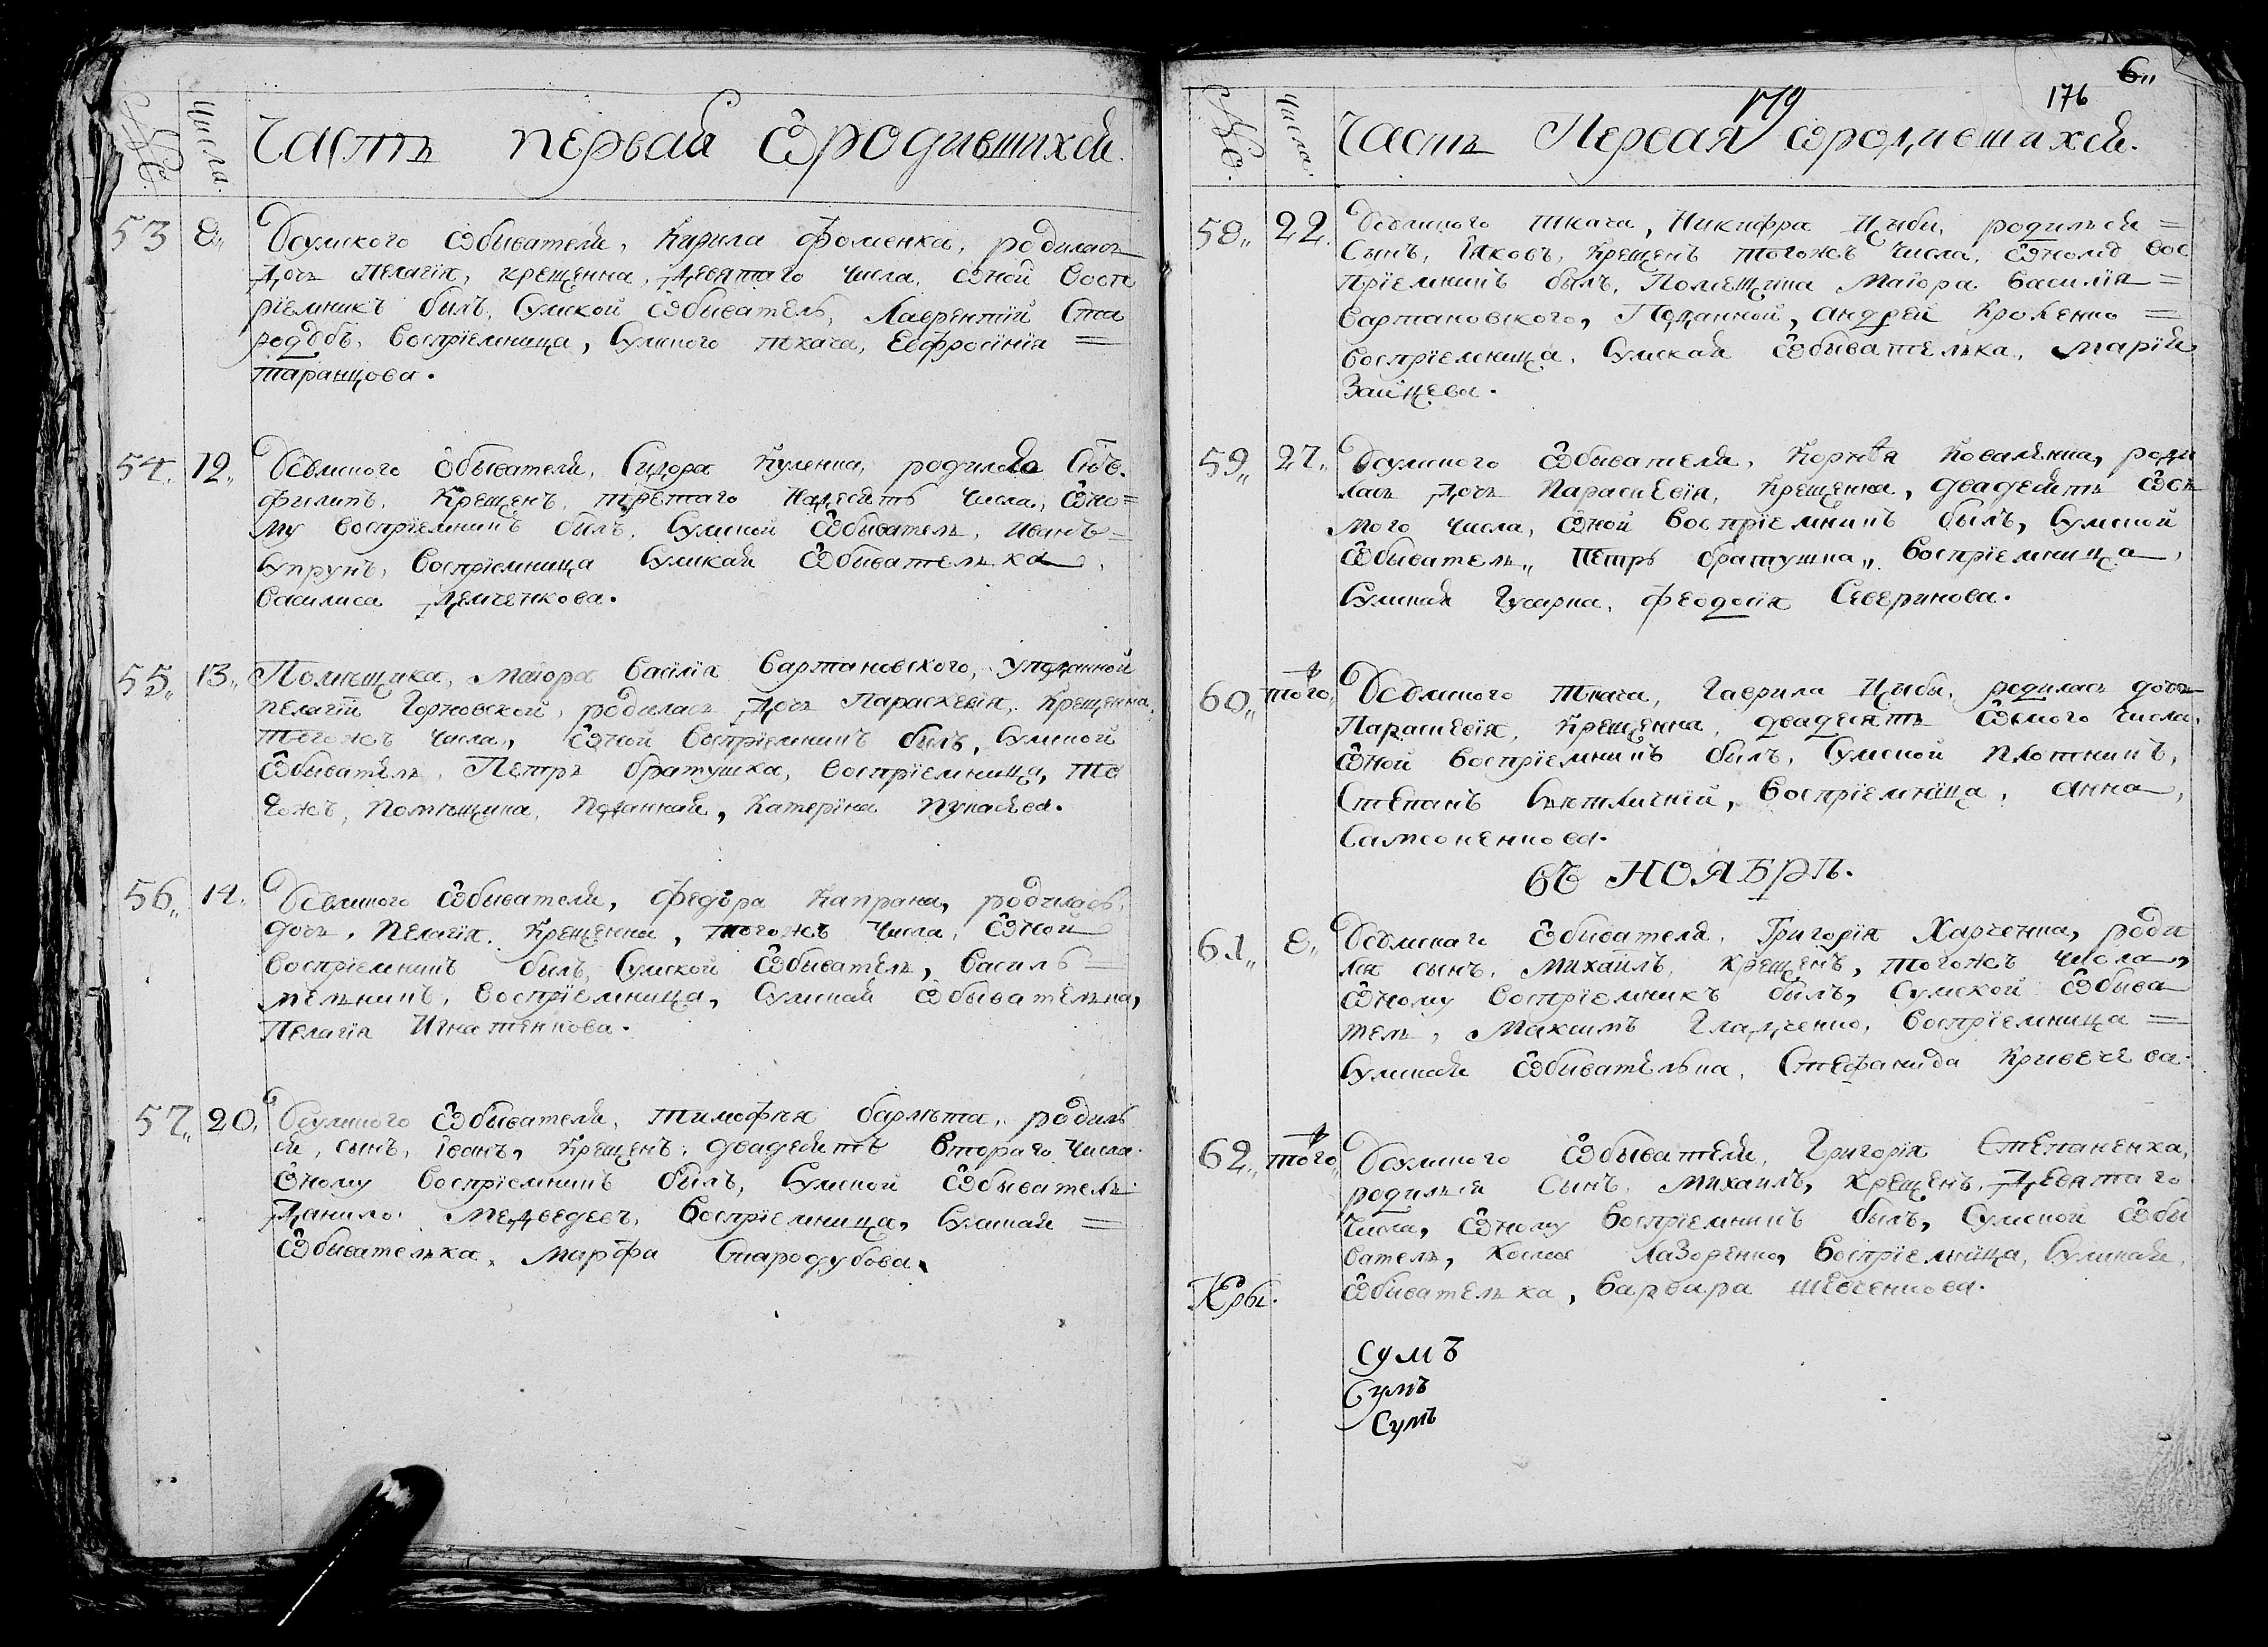 Числа.
Часть первая ѡродившихся.
53 8„ Усумского ѡбывателя, Кирила Фоменка, родилась
дочь Пелагія, крещенна, девятаго числа, ѡной восп
ріемникъ былъ, Сумской ѡбыватель, Лаврентій Ста
родубъ, воспріемница, Сумского ткача, Евфросінія =
Таранцова.
54. 12„ ѡбывателя, Сидора Куленка, родился Сынъ.
Филипъ, Крещенъ, третяго надесять числа, ѡно=
му воспріемникъ былъ, Сумской ѡбыватель, Иванъ =
Супрунъ, воспріемница Сумская ѡбывателька,
Василиса Демченкова.
55„ 13„ Помещика, Маіора Василія Вартановского, уподанной
Пелагіи Горловской, родилась дочь Параскевія, Крещенна,
тогожъ числа, ѡной воспріемникъ былъ, Сумской
ѡбыватель, Петръ братушка, воспріемница, то
гожъ, Помещика, Поданная, Катерина
56„ 14. ѡбывателя, Федора Капрана, родилась,
дочь, Пелагія, Крещенна, тогожъ числа, ѡной
воспріемникъ былъ, Сумской ѡбыватель, Василь =
мельникъ, воспріемница, Сумская ѡбывателька,
Пелагія Игнатенкова.
57„ 20. Усумского ѡбывателя, Тимофея родил
ся, сынъ, Іванъ, Крещенъ, двадесять втораго числа.
ѡному воспріемникъ былъ, Сумской ѡбыватель
Данило Медведевъ, воспріемница, Сумская =
ѡбывателька, Марфа Стародубова.
6„
179 176
Числа.
Часть Первая ѡродившихся.
58„ 22. ткача, Никифра Цыби, родился =
Сынъ, Іяковъ, Крещенъ тогожъ числа, ѡному вос
пріемникъ былъ, Помещика Маіора Василія =
Вартановского, Поданной, Андрей =
воспріемница, Сумская ѡбывателька, Марія
Зайцева.
59„ 27„ Усумского ѡбывателя, Корнѣя Коваленка, роди
лась дочь Параскевія, Крещенна, двадесять ѡсь
мого числа, ѡной воспріемникъ былъ, Сумской
ѡбыватель„ Петръ братушка„ воспріемница,
Сумская Гусарка, Феодосія Северинова.
60„ того„ ткача, Гаврила Цыби, родилась дочь
Параскевія, Крещенна, двадесять ѡсмого числа,
ѡной воспріемникъ былъ, Сумской плотникъ,
Степанъ воспріемница, Анна,
Самсоненкова.
въ НОЯБРѢ.
61„ 8„ ѡбывателя, Григорія Харченка, роди
лся сынъ, Михаилъ, Крещенъ, тогожъ числа,
ѡному воспріемникъ былъ, Сумской ѡбыва
тель, Максимъ Гладченко, воспріемница =
Сумская ѡбывателька, Стефанида
62„ того„ Усумского ѡбывателя, Григорія Степаненка,
родился сынъ, Михаилъ, Крещенъ, девятаго
числа, ѡному воспріемникъ былъ, Сумской ѡбы
ватель, Косма Лазоренко, воспріемница, Сумская,
ѡбывателька, Варвара Шевченкова.
сумъ
Сумъ
Сумъ